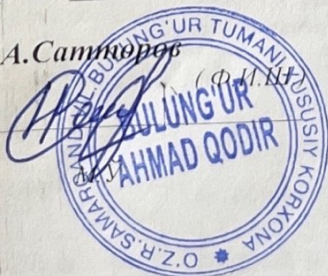 А.Сатторов
(Ф.И.Ш)
М.У
O'Z.R.SAMARQAND VIL.BULUNG'UR TUMANI XUSUSIY KORXONA
BULUNG'UR
AHMAD QODIR